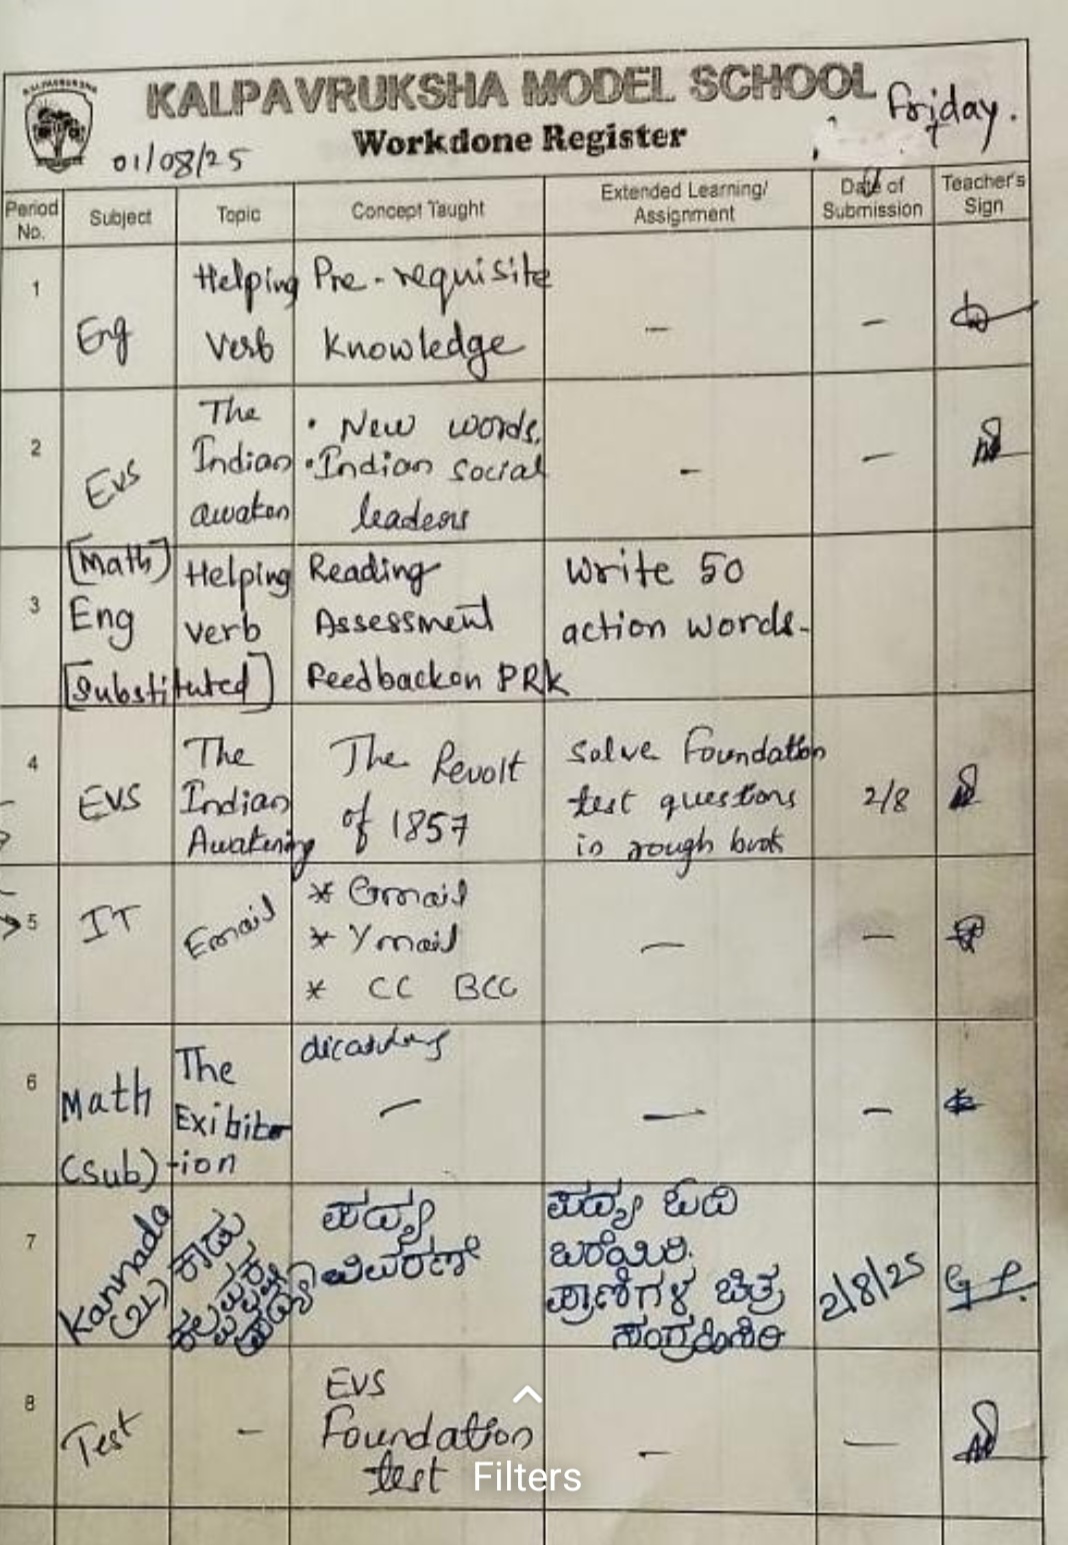 KALPAVRUKSHA
KALPAVRUKSHA MODEL SCHOOL
Friday.
Workdone Register
01/08/25
Period No.
Subject
Topic
Concept Taught
Extended Learning/ Assignment
Date of Submission
Teacher's Sign
1
Eng
Helping
verb
Pre-requisite
knowledge
-
-
2
EVS
The
Indian
awaken
• New words,
• Indian social
leaders
-
-
3
[Math]
Eng
[Substituted]
Helping
verb
Reading
Assessment
Feedback on PRK
Write 50
action words.
4
EVS
The
Indian
Awakening
The Revolt
of 1857
Solve Foundation
test questions
in rough book
2/8
5
IT
Email
* Gmail
* Ymail
* CC BCC
-
-
6
Math
(Sub)
The
Exibit
-ion
-
-
-
7
Kannada
(2L)
ಕಾಡು
ಪದ್ಯ
ವಿವರಣೆ
ಪದ್ಯ ಓದಿ
ಬರೆಯಿರಿ.
ಪ್ರಾಣಿಗಳ ಚಿತ್ರ
ಸಂಗ್ರಹಿಸಿರಿ
2/8/25
8
Test
-
EVS
Foundation
test
-
-
Filters